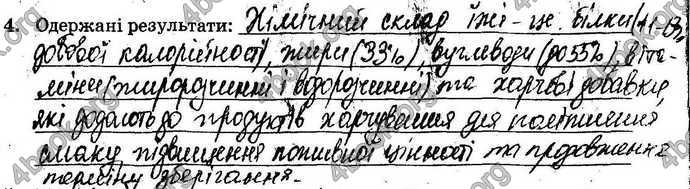 4. Одержані результати: Хімічний склад їжі - це білки (11-13%
добової калорійності, жири (33%), вуглеводи (до 55%), віта-
міни (жиророзчинні і водорозчинні) та харчові добавки,
які додають до продуктів харчування для поліпшення
смаку, підвищення поживної цінності та продовження
терміну зберігання.